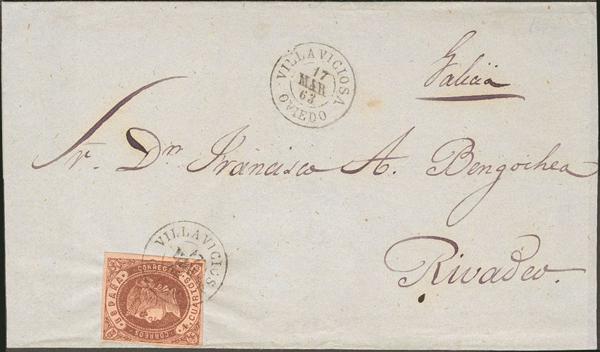 VILLAVICIOSA
17
MAR
63
OVIEDO
Galicia
Sr. Dn Francisco A. Bengochea
Rivadeo.
VILLAVICIOS
17
ESPAÑA
CORREOS
4 CUARTOS
CORREOS